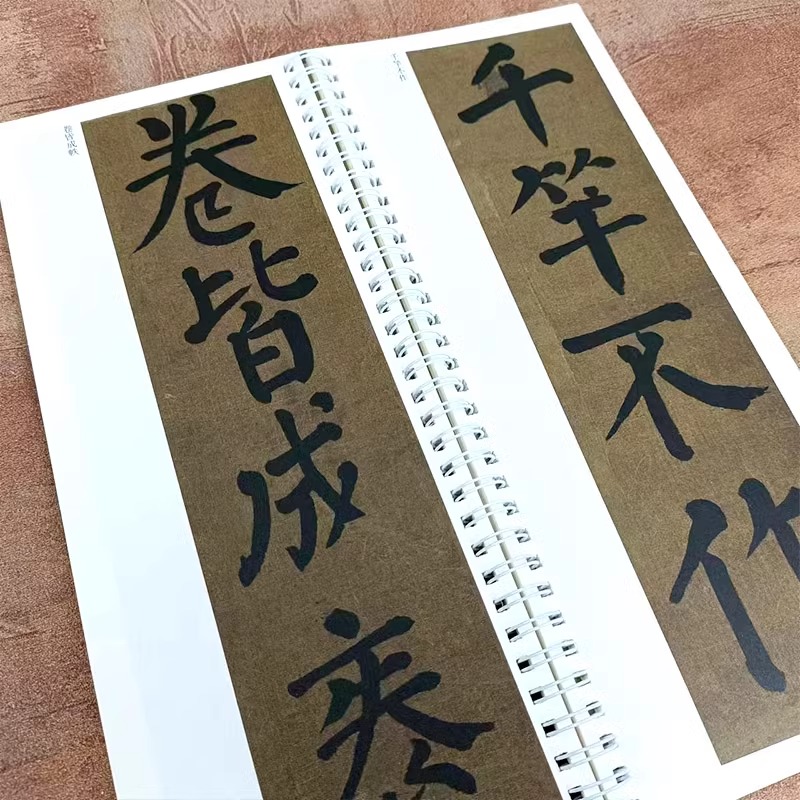 卷皆成帙
卷皆成袠
千竿不作
千竿不作